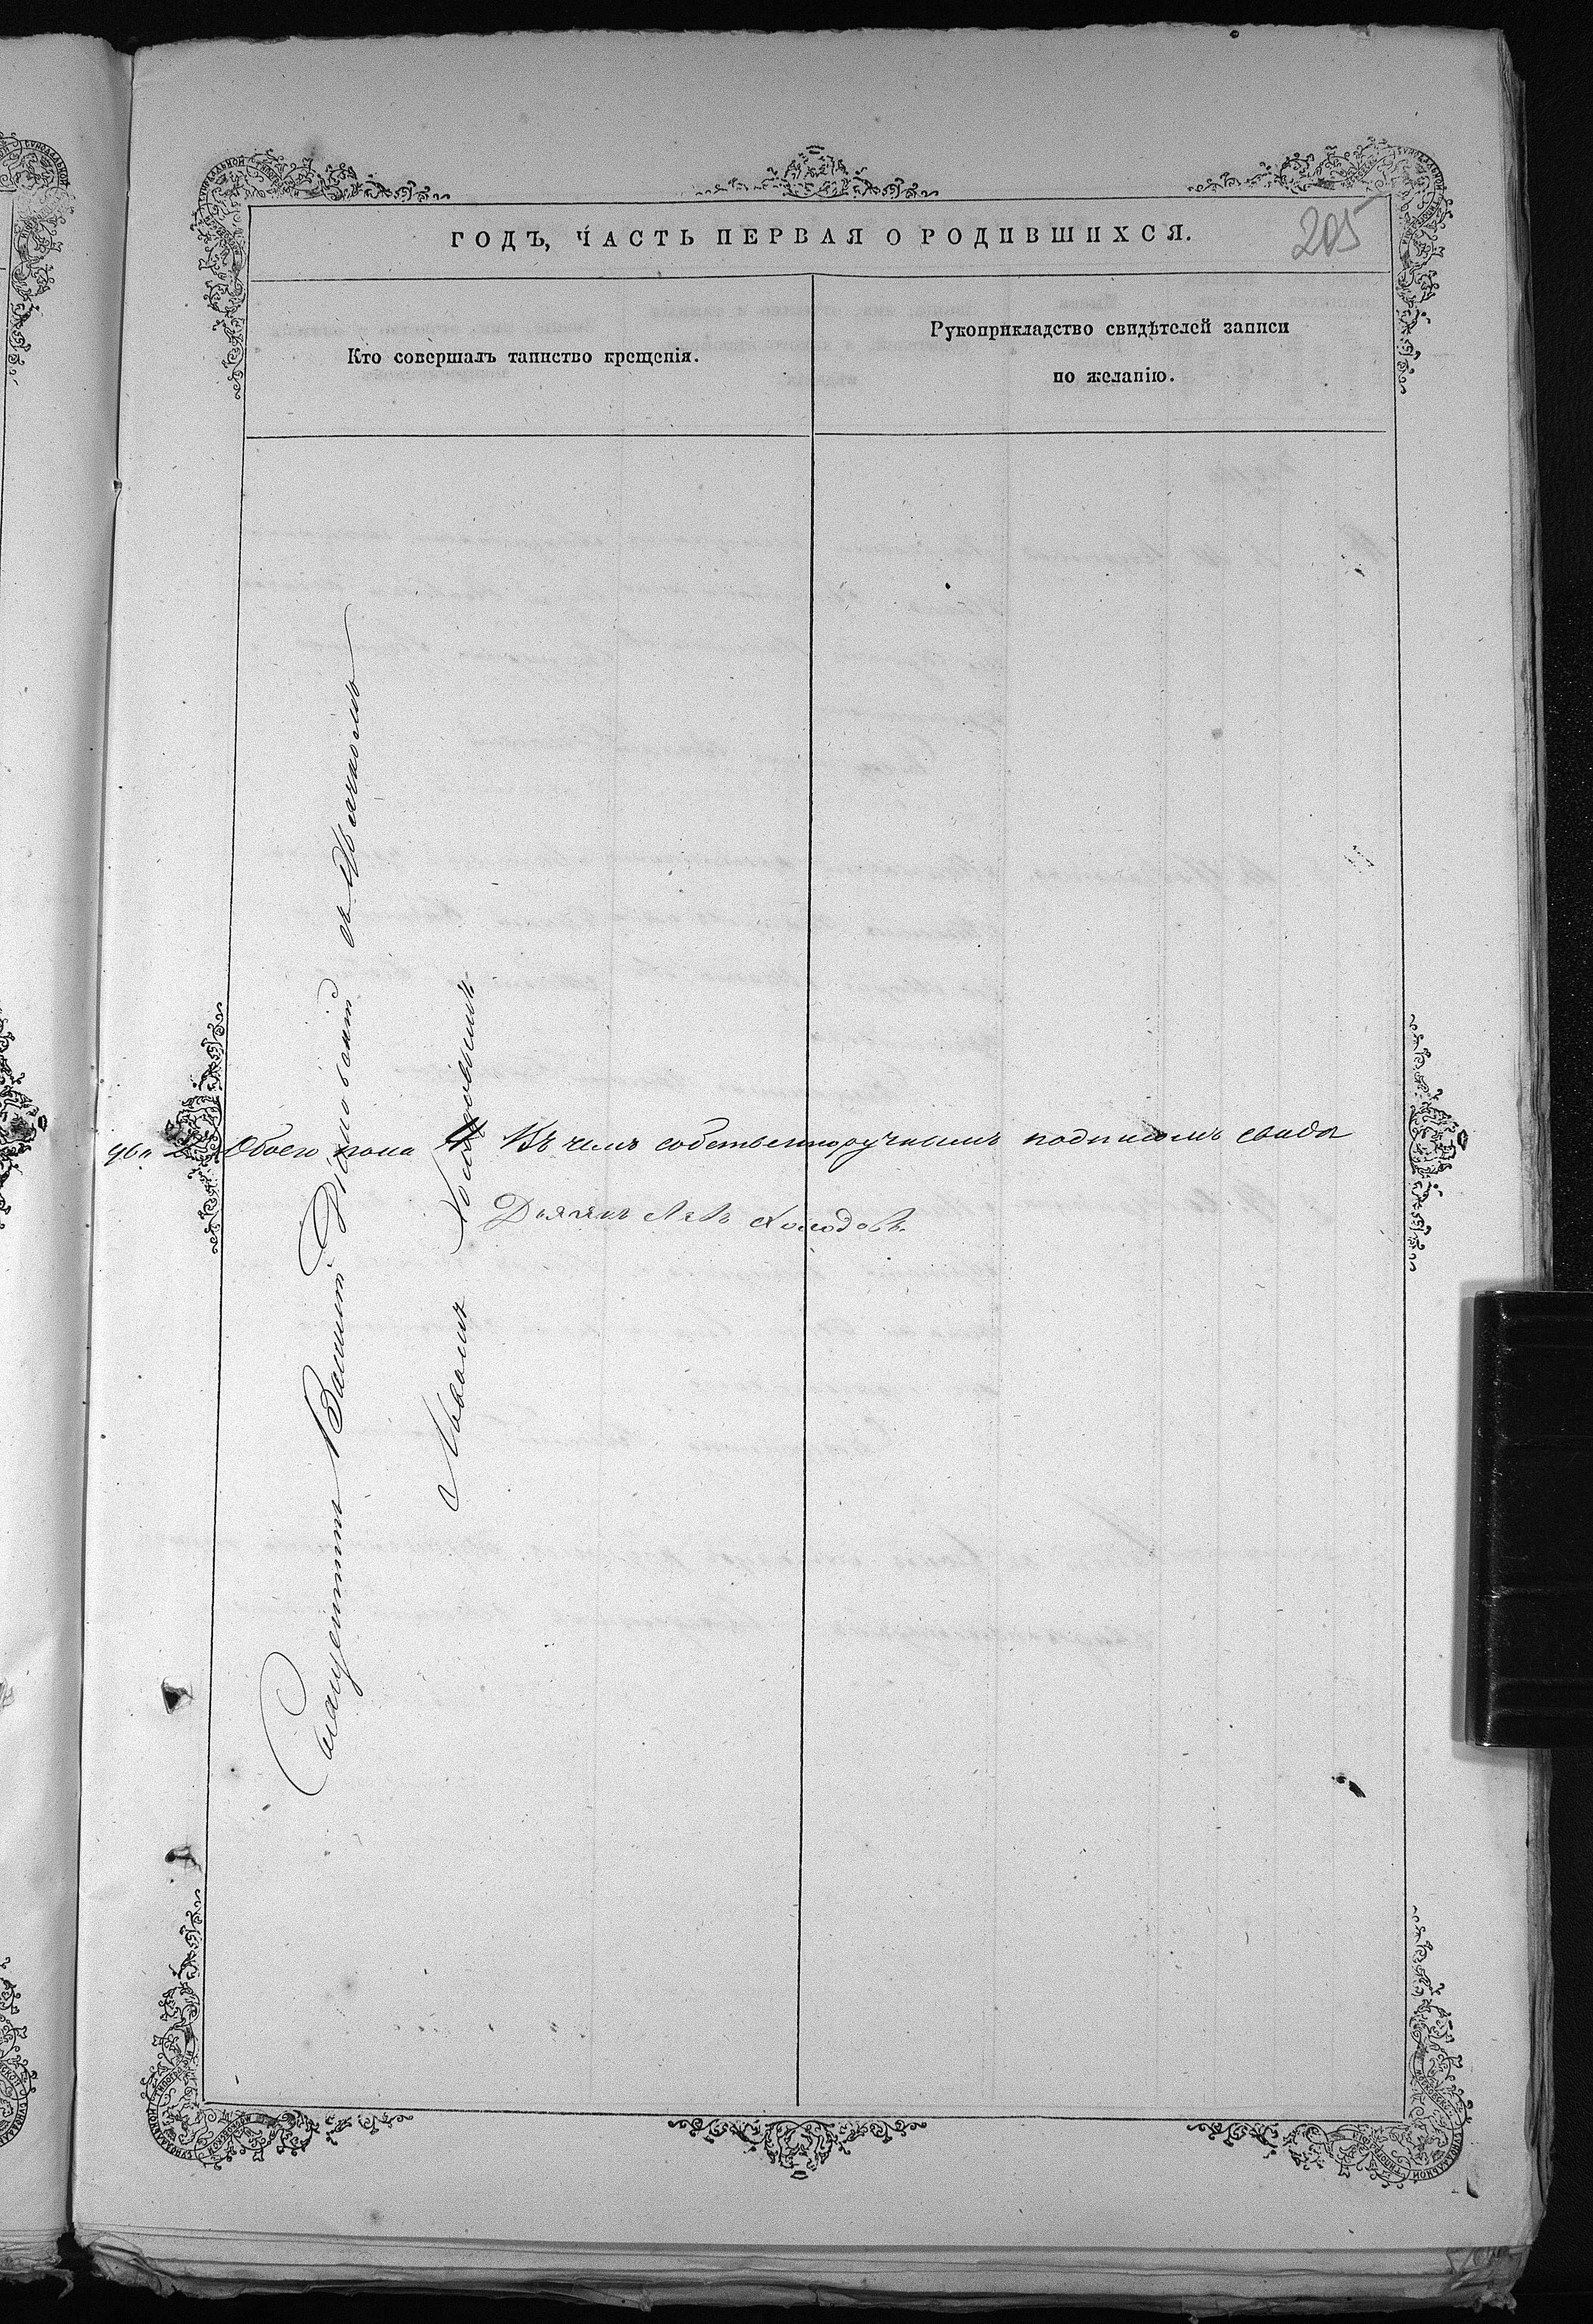 ГОДЪ, ЧАСТЬ ПЕРВАЯ О РОДИВШИХСЯ.
205
Кто совершалъ таинство крещенія.
Рукоприкладство свидѣтелей записи
по желанію.
Священникъ Василій съ Дьячкомъ
Львомъ Холодовымъ
2 Обоего пола 4 Въ чемъ собственноручнымъ подписомъ свидѣ
Дьячекъ Левъ Холодовъ